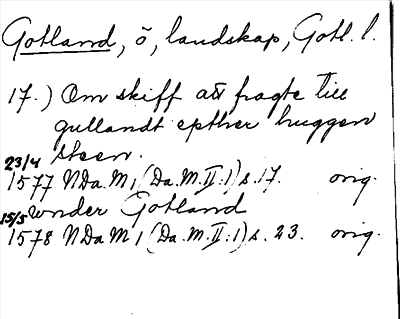 Gotland, ö, landskap, Gotl. l.
17.) Om skiff att fragte till
gullandt epther huggen
steen.
23/4
1577 NDa.M1 (Da.M.II:1) s.17. orig.
15/5 under Gotland
1578 NDaM1 (Da.M.II:1) s.23. orig.